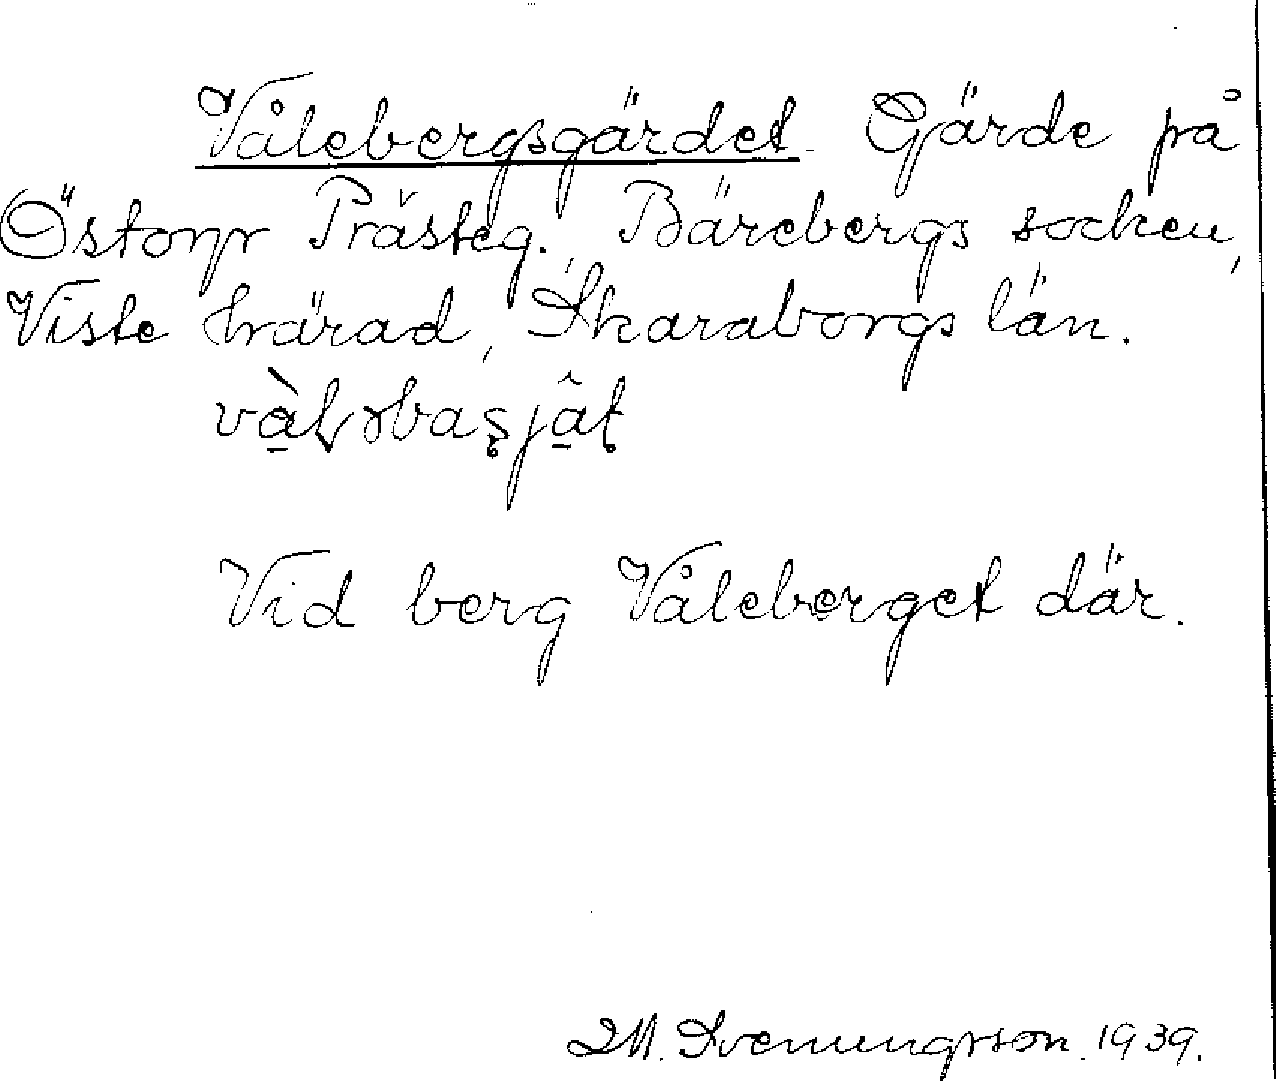 Vålebergsgärdet. Gärde på
Östorp Prästeg. Bärebergs socken,
Viste härad, Skaraborgs län.
Vid berg Våleberget där.
M. Svenungsson. 1939.